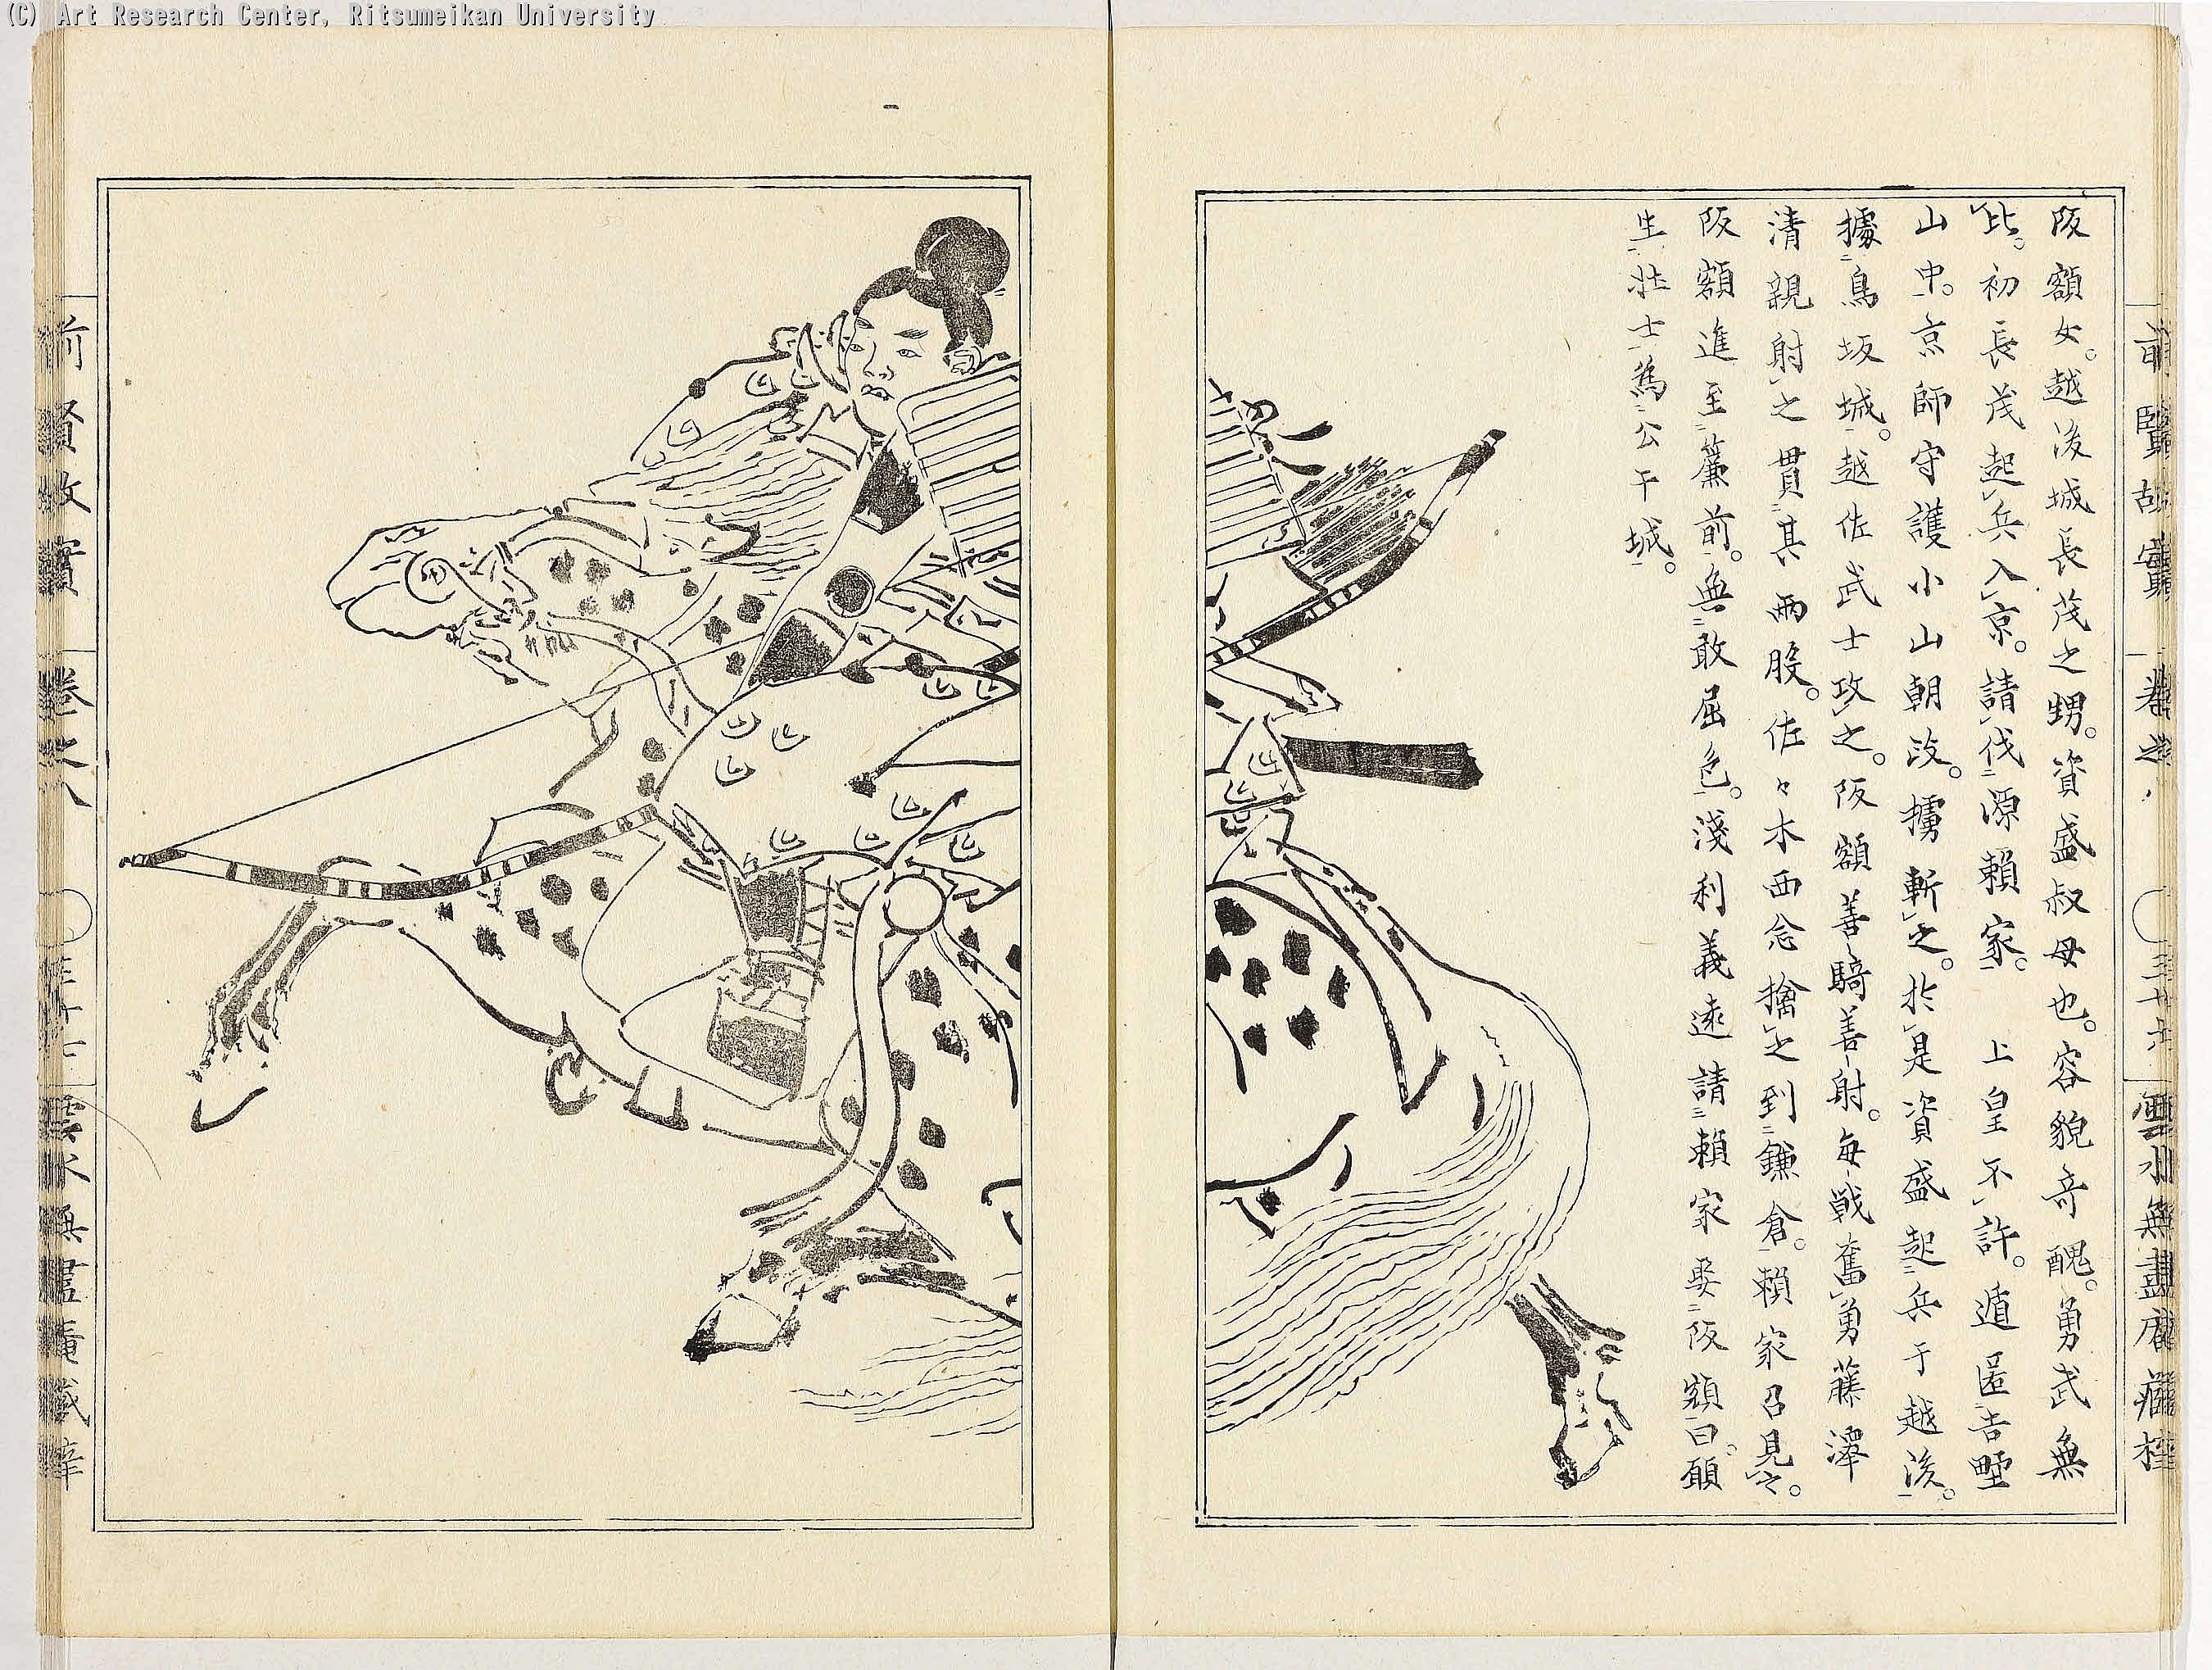 (C) Art Research Center, Ritsumeikan University
阪額女。越後城長茂之甥。資盛叔母也。容貌奇醜。勇武無
比。初長茂起兵入京。請伐源頼家。　上皇不許。遁匿吉野
山中。京師守護小山朝政。擄斬之。於是資盛起兵于越後。
據鳥坂城。越佐武士攻之。阪額善騎善射。毎戦奮勇藤澤
清親射之貫其両股。佐々木西念擒之到鎌倉。頼家召見之。
阪額進至簾前。無敢屈色。淺利義遠請頼家娶阪額曰。願
生壮士為公干城。
前賢故實　卷之八　雲水無盡庵藏梓
前賢故實　卷之八　三十七　雲水無盡庵藏梓